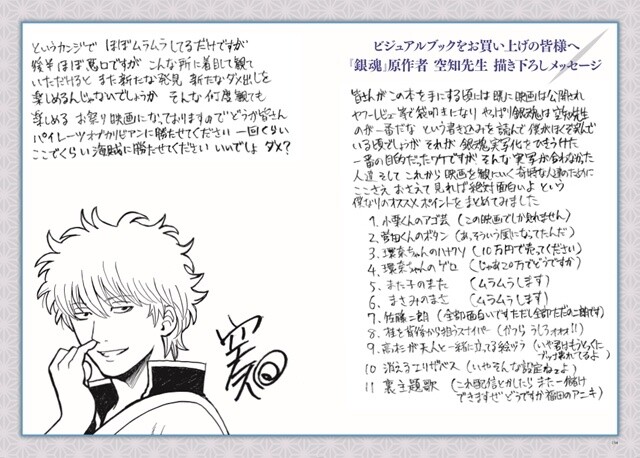 ビジュアルブックをお買い上げの皆様へ
『銀魂』原作者 空知先生 描き下ろしメッセージ
皆さんが この本を手にする頃には 既に映画は公開され
ヤフーレビュー等で袋叩きになり やっぱり銀魂は空知先生
のが一番だな という書き込みを読んで 僕がほくそ笑んで
いる頃でしょうが それが 銀魂実写化をひきうけた
一番の目的だったワケですが そんな実写が合わなかった
人達 そして これから映画を観にいく奇特な人達のために
ここさえ おさえて見れば絶対面白いよ という
僕なりのオススメポイントをまとめてみました
1. 小栗くんのアゴ芸 (この映画でしか見れません)
2. 菅田くんのボタン (あっそういう風になってたんだ)
3. 環奈ちゃんのハナクソ (10万円で売ってください)
4. 環奈ちゃんのゲロ (じゃあ20万でどうですか)
5. また子のまた (ムラムラします)
6. まさみのまさ (ムラムラします)
7. 佐藤二朗 (全部面白いですただし全部ただの二朗です)
8. 桂を背後から狙うスナイパー (かつら うしろォォォ!!)
9. 高杉が天人と一緒に立ってる絵ヅラ (いや君はもうとっくに
ブッ壊れてるよ)
10 消えるエリザベス (いやそんな設定ねェよ)
11 裏主題歌 (これ配信とかしたら また一儲け
できますぜ どうですか福田のアニキ)
というカンジで ほぼムラムラしてるだけですが
後半 ほぼ悪口ですが こんな所に着目して観て
いただけると また新たな発見 新たなダメ出しを
楽しめるんじゃないでしょうか そんな何度観ても
楽しめる お祭り映画になっておりますので どうか皆さん
パイレーツオブカリビアンに勝たせてください 一回ぐらい
ここでぐらい 海賊に勝たせてください いいでしょ ダメ?
空知